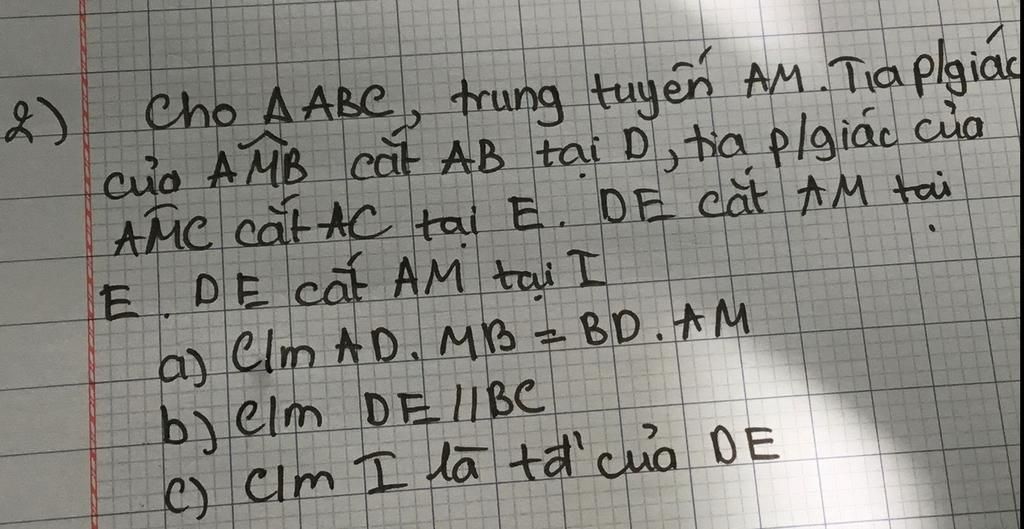 2) Cho Δ ABC, trung tuyến AM. Tia p/giác
của AM̂B cắt AB tại D, tia p/giác của
AM̂C cắt AC tại E. DE cắt AM tai
E. DE cắt AM tại I
a) C/m AD. MB = BD. AM
b) C/m DE // BC
c) C/m I là tđ' của DE